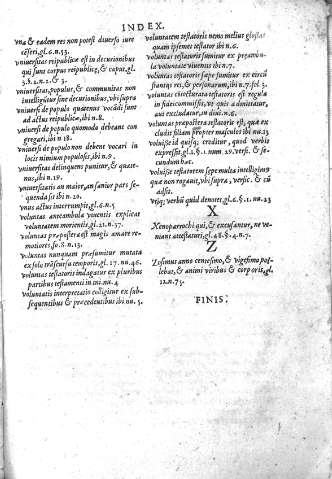 INDEX.
vna & eadem res non potest diuerso iure
censeri, gl. 6. n. 53.
vniuersitas reipublicæ est in decurionibus
qui sunt corpus reipublicæ, & caput, gl.
3. §. 2. n. 2. & 3.
vniuersitas, populus, & communitas non
intelligitur sine decurionibus, vbi supra
vniuersi de populo quatenus vocādi sunt
ad actus reipublicæ, ibi n. 8.
vniuersi de populo quomodo debeant con
gregari, ibi n. 18.
vniuersi de populo non debent vocari in
locis nimium populosis, ibi n. 9.
vniuersitas delinquens punitur, & quate-
nus, ibi n. 19.
vniuersitatis an maior, an sanior pars se-
quenda sit ibi n. 20.
vnus actus interrumpit, gl. 6. n. 5
voluntas antecambula vouentis explicat
voluntatem morientis, gl. 21. n. 37.
voluntas præpostera est magis amare re-
motiores, fo. 8. n. 13.
voluntas nunquam præsumitur mutata
ex solo trāscursu temporis, gl. 17. nu. 46.
voluntas testatoris indagatur ex pluribus
partibus testamenti in ini. nu. 4
voluntatis interpretatio colligitur ex sub-
sequentibus & præcedentibus ibi nu. 5.
voluntatem testatoris nemo melius glossat
quam ipsemet testator ibi n. 6.
voluntas testatoris sumitur ex præambu-
la voluntate viuentis ibi n. 7.
voluntas testatoris sæpe sumitur ex circū
stantijs rei, & personarum, ibi n. 7. fol. 3.
voluntas coniecturata testatoris est regula
in fideicommissis, vt quis admittatur,
aut excludatur, in diui. n. 6.
voluntas præpostera testatoris est, quæ ex
cludit filiam propter masculos ibi nu. 23
voluisse id quisq; creditur, quod verbis
expressit, gl. 2. §. 1. num. 29. vers. & se-
cundum hæc.
voluisse testatorem semper multa intelligimus
quæ non rogauit, vbi supra, versic. & cū
adsit.
vsq; verbū quid denotet, gl. 6. §. 1. nu. 23
X
Xenoparochi qui, & excusantur, ne ve-
niant attestaturi, gl. 48. §. 4. n. 7.
Z
Zosimus anno centesimo, & vigesimo pol-
lebat, & animi viribus & corporis, gl.
12. n. 73.
FINIS.